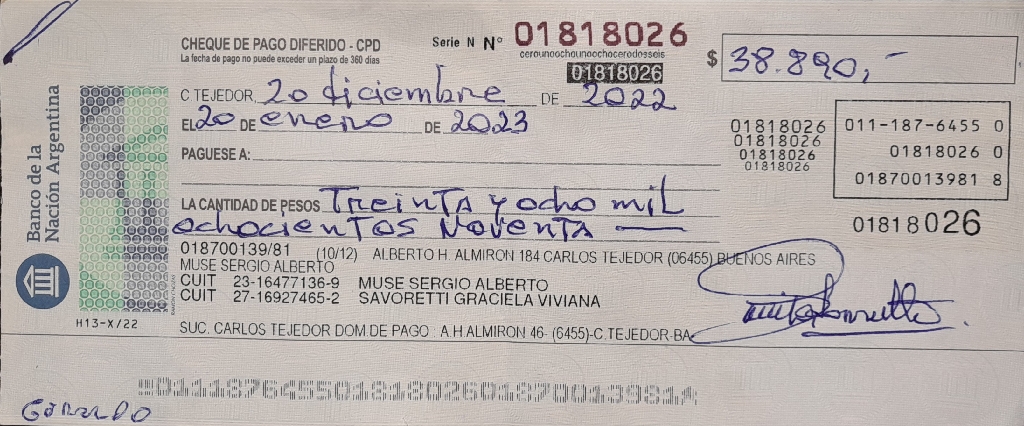 CHEQUE DE PAGO DIFERIDO - CPD
La fecha de pago no puede exceder un plazo de 360 días
Serie N Nº 01818026
cerounoochounoochocerodosseis
01818026
$ 38.890,-
C TEJEDOR, 20 diciembre DE 2022
EL 20 DE enero DE 2023
PAGUESE A:
LA CANTIDAD DE PESOS Treinta y ocho mil
ochocientos noventa
01818026
01818026
01818026
01818026
011-187-6455 0
01818026 0
01870013981 8
01818026
018700139/81 (10/12) ALBERTO H. ALMIRON 184 CARLOS TEJEDOR (06455) BUENOS AIRES
MUSE SERGIO ALBERTO
CUIT 23-16477136-9 MUSE SERGIO ALBERTO
CUIT 27-16927465-2 SAVORETTI GRACIELA VIVIANA
SUC. CARLOS TEJEDOR DOM.DE PAGO : A.H.ALMIRON 46- (6455)-C.TEJEDOR-BA
Banco de la
Nación Argentina
H13-X/22
01118764550181802601870013981